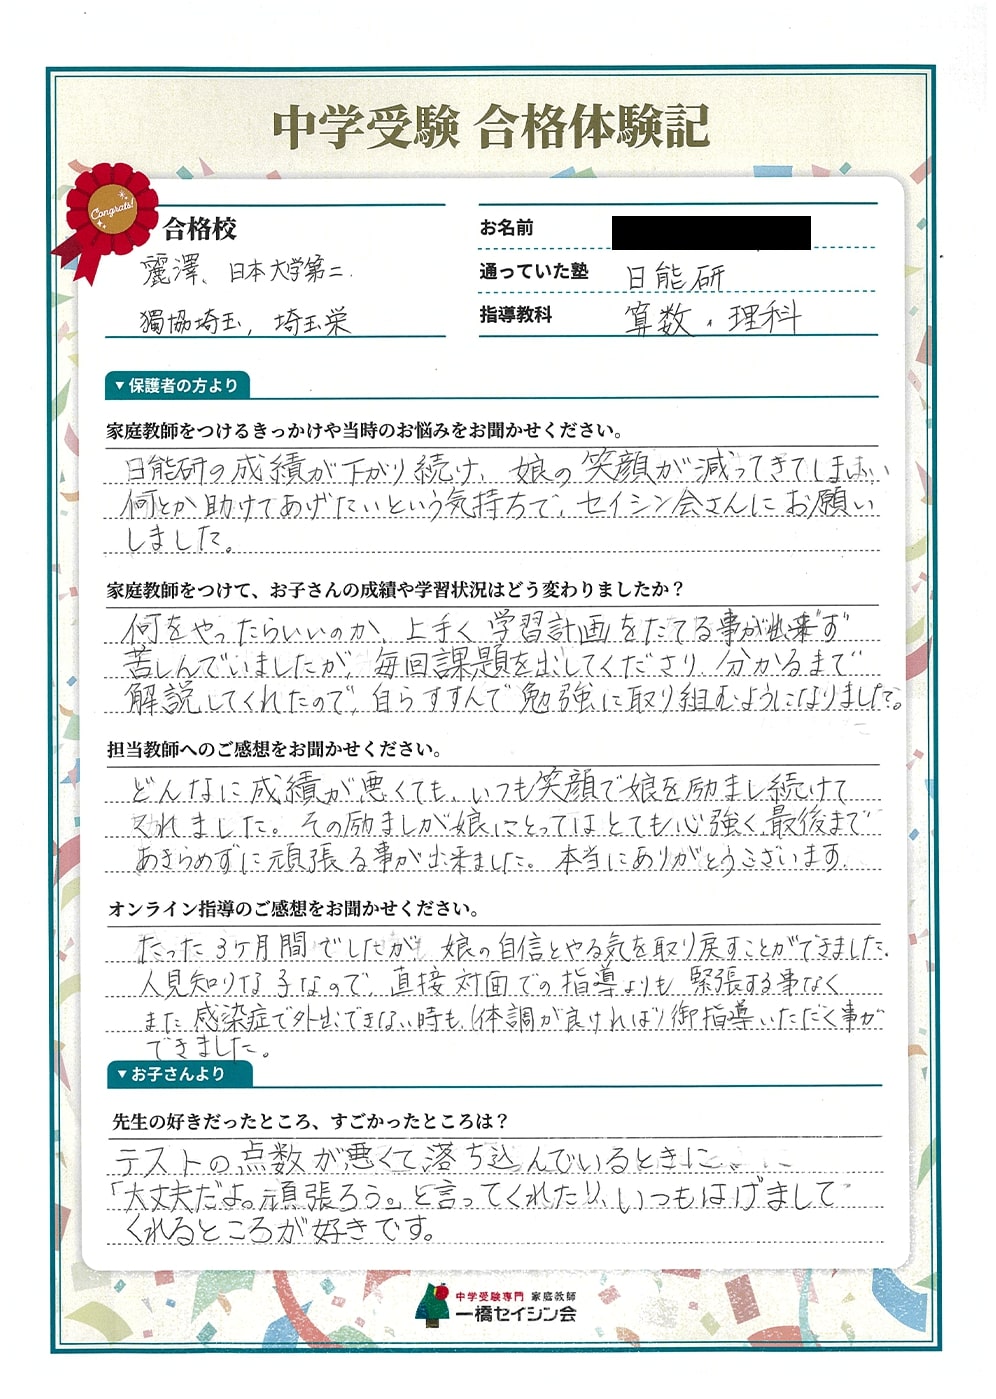 中学受験 合格体験記
Congrats!
合格校
麗澤、日本大学第二.
獨協埼玉, 埼玉栄
お名前
通っていた塾 日能研
指導教科 算数、理科
▼保護者の方より
家庭教師をつけるきっかけや当時のお悩みをお聞かせください。
日能研の成績が下がり続け、娘の笑顔が減ってきてしまい、
何とか助けてあげたいという気持ちで、セイシン会さんにお願い
しました。
家庭教師をつけて、お子さんの成績や学習状況はどう変わりましたか？
何をやったらいいのか、上手く学習計画をたてる事が出来ず
苦しんでいましたが、毎回課題を出してくださり、分かるまで
解説してくれたので、自らすすんで勉強に取り組むようになりました。
担当教師へのご感想をお聞かせください。
どんなに成績が悪くても、いつも笑顔で娘を励まし続けて
くれました。その励ましが娘にとってはとても心強く、最後まで
あきらめずに頑張る事が出来ました。本当にありがとうございます.
オンライン指導のご感想をお聞かせください。
たった3ケ月間でしたが、娘の自信とやる気を取り戻すことができました.
人見知りな子なので、直接対面での指導よりも、緊張する事なく
また感染症で外出できない時も、体調が良ければ御指導いただく事が
できました。
▼お子さんより
先生の好きだったところ、すごかったところは？
テストの点数が悪くて落ち込んでいるときに、
「大丈夫だよ。頑張ろう。」と言ってくれたり、いつもはげまして
くれるところが好きです。
中学受験専門 家庭教師
一橋セイシン会